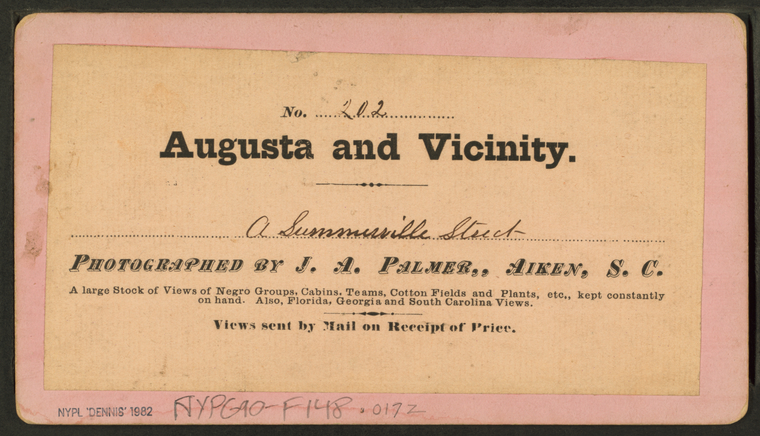 No. 202
Augusta and Vicinity.
A Summerville Street
PHOTOGRAPHED BY J. A. PALMER,, AIKEN, S. C.
A large Stock of Views of Negro Groups, Cabins, Teams, Cotton Fields and Plants, etc., kept constantly
on hand. Also, Florida, Georgia and South Carolina Views.
Views sent by Mail on Receipt of Price.
NYPL 'DENNIS' 1982 NYPG90-F148.017Z